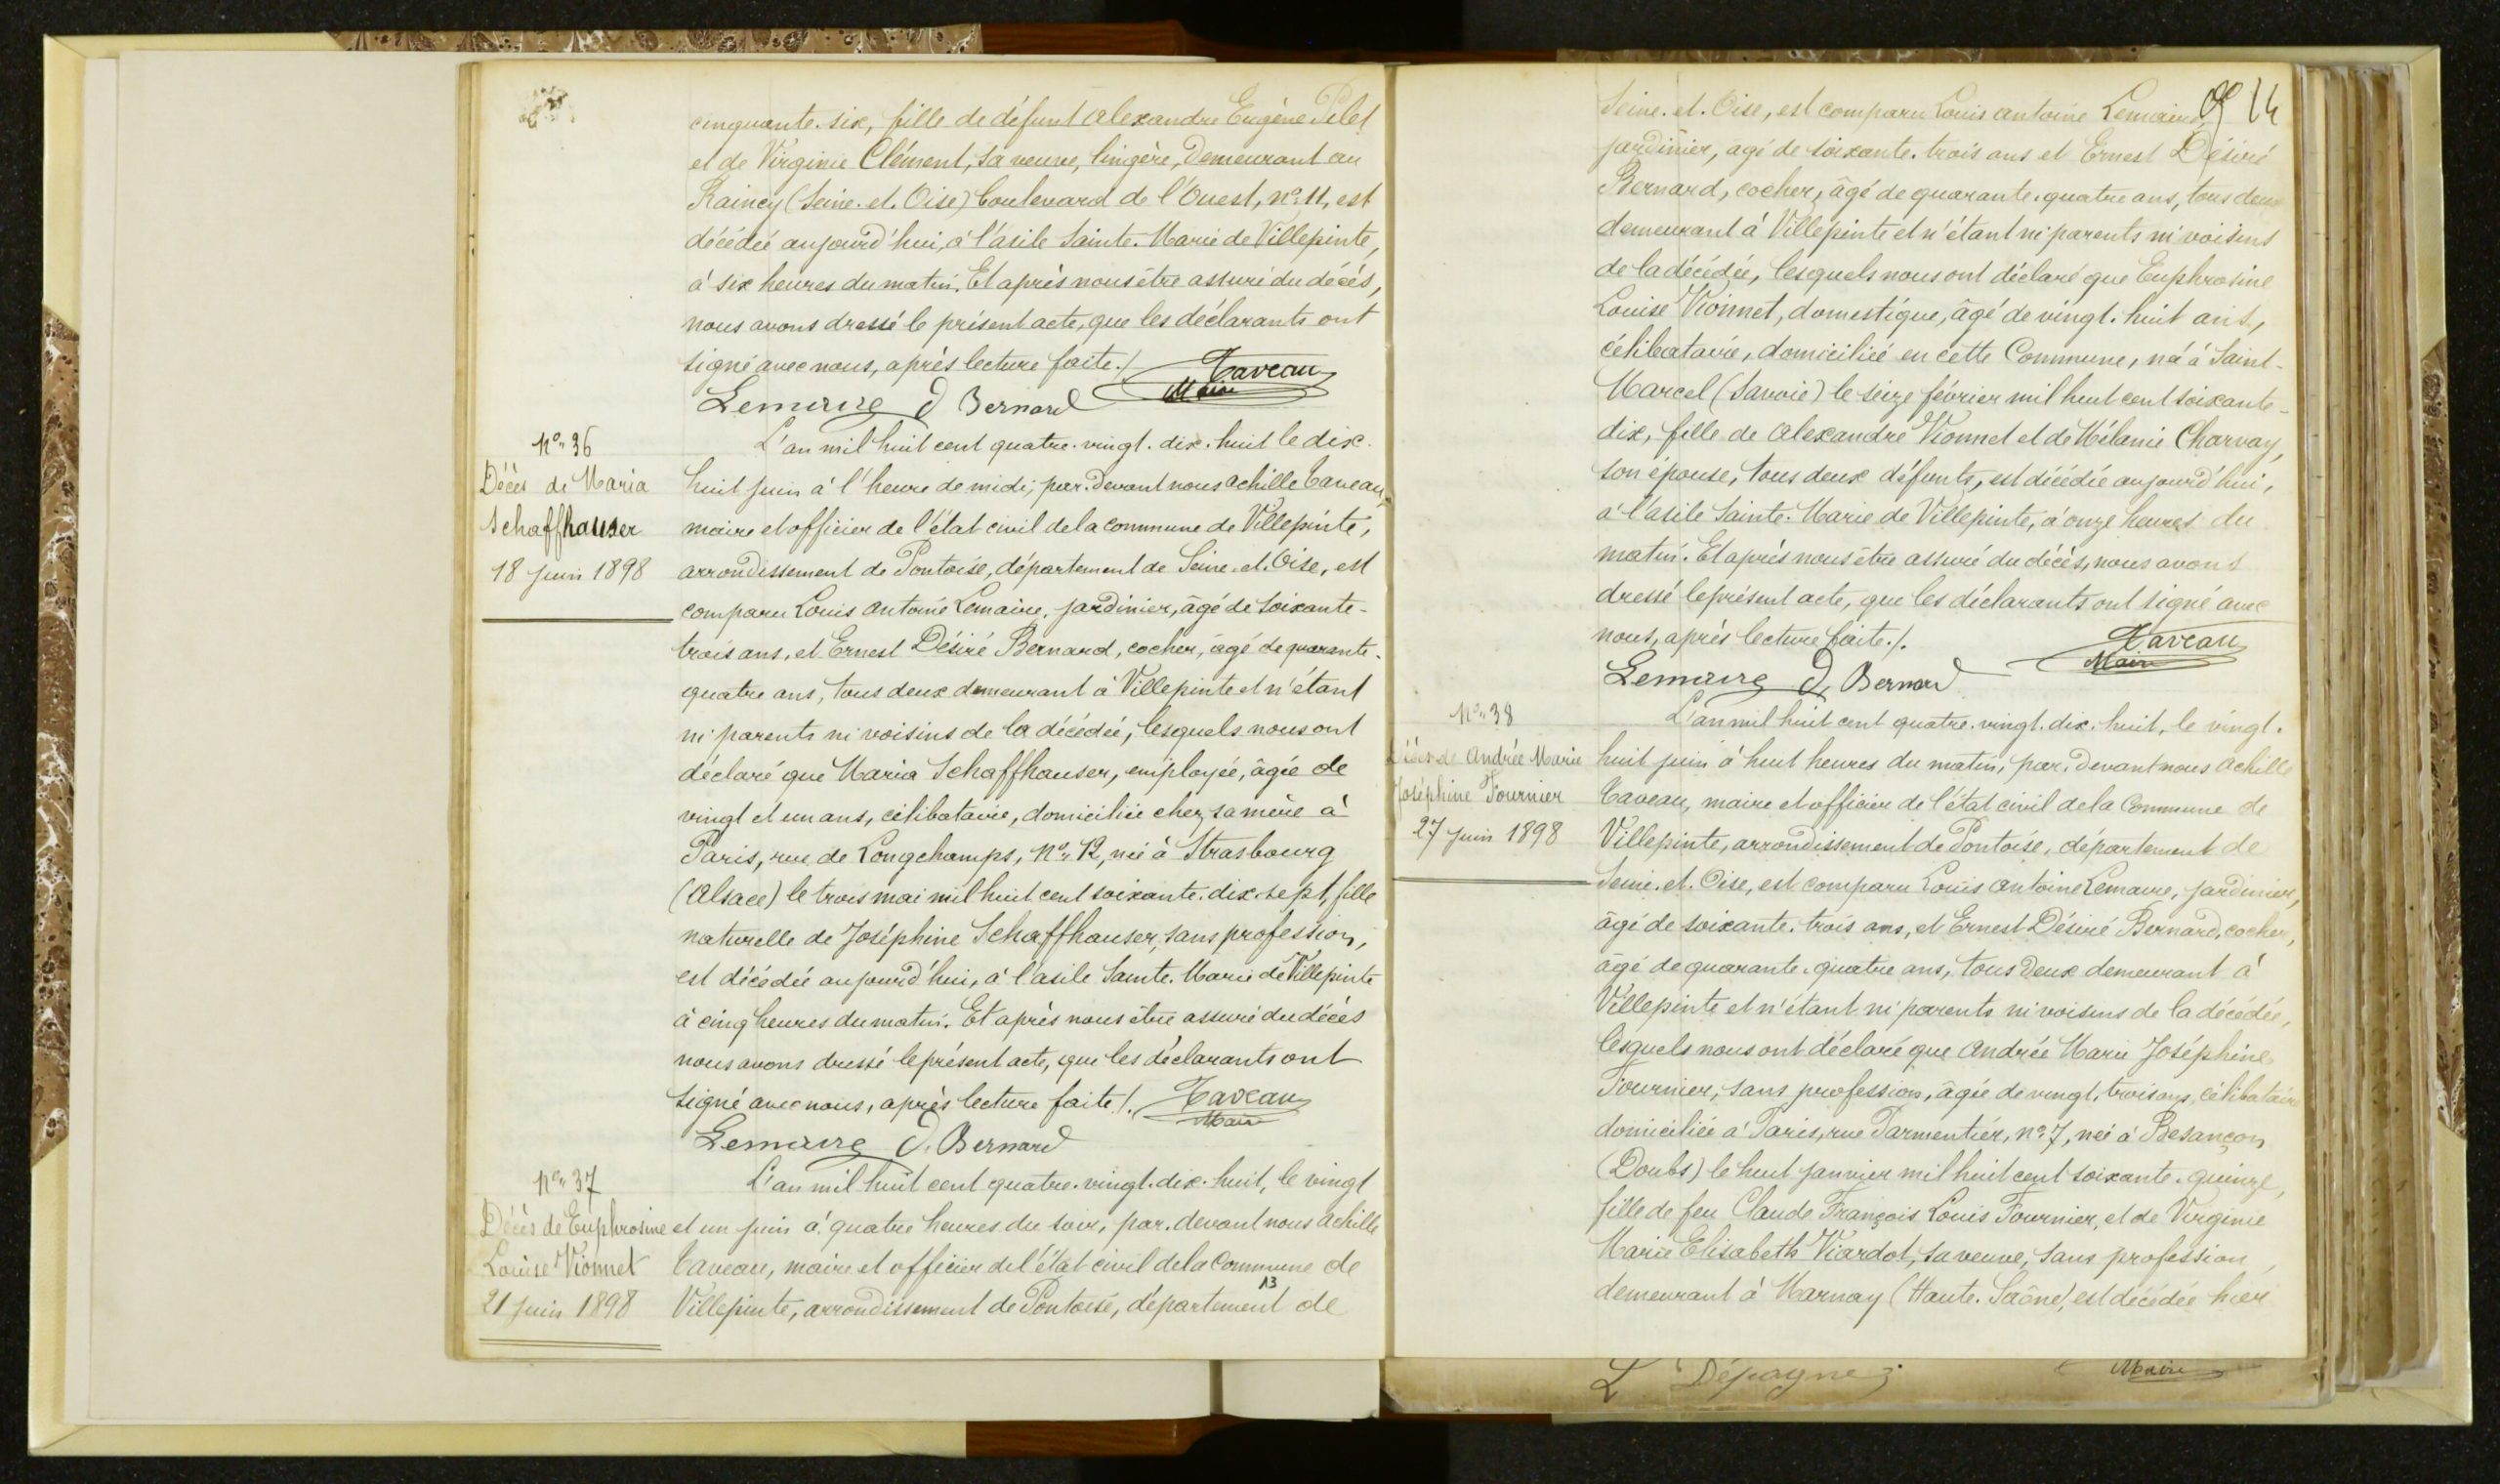 cinquante-six, fille de défunt Alexandre Eugène Pelet
et de Virginie Clément, sa veuve, lingère, demeurant au
Raincy (Seine-et-Oise) boulevard de l'Ouest, n° 11, est
décédée aujourd'hui, à l'asile Sainte-Marie de Villepinte,
à six heures du matin. Et après nous être assuré du décès,
nous avons dressé le présent acte, que les déclarants ont
signé avec nous, après lecture faite./.
Taveau
Maire
Lemaire D Bernard
N° 36
Décès de Maria
Schaffhauser
18 juin 1898
L'an mil huit cent quatre-vingt-dix-huit le dix-
huit juin à l'heure de midi, par-devant nous Achille Taveau,
maire et officier de l'état civil de la commune de Villepinte,
arrondissement de Pontoise, département de Seine-et-Oise, est
comparu Louis Antoine Lemaire, jardinier, âgé de soixante-
trois ans, et Ernest Désiré Bernard, cocher, âgé de quarante-
quatre ans, tous deux demeurant à Villepinte et n'étant
ni parents ni voisins de la décédée, lesquels nous ont
déclaré que Maria Schaffhauser, employée, âgée de
vingt et un ans, célibataire, domiciliée chez sa mère à
Paris, rue de Longchamps, n° 12, née à Strasbourg
(Alsace) le trois mai mil huit cent soixante-dix-sept, fille
naturelle de Joséphine Schaffhauser, sans profession,
est décédée aujourd'hui, à l'asile Sainte-Marie de Villepinte
à cinq heures du matin. Et après nous être assuré du décès
nous avons dressé le présent acte, que les déclarants ont
signé avec nous, après lecture faite./.
Taveau
Maire
Lemaire D. Bernard
N° 37
Décès de Euphrosine
Louise Vionnet
21 juin 1898
L'an mil huit cent quatre-vingt-dix-huit, le vingt
et un juin à quatre heures du soir, par-devant nous Achille
Taveau, maire et officier de l'état civil de la Commune de
Villepinte, arrondissement de Pontoise, département de
13
14
Seine-et-Oise, est comparu Louis Antoine Lemaire,
jardinier, âgé de soixante-trois ans et Ernest Désiré
Bernard, cocher, âgé de quarante-quatre ans, tous deux
demeurant à Villepinte et n'étant ni parents ni voisins
de la décédée, lesquels nous ont déclaré que Euphrosine
Louise Vionnet, domestique, âgé de vingt-huit ans,
célibataire, domiciliée en cette Commune, née à Saint-
Marcel (Savoie) le seize février mil huit cent soixante-
dix, fille de Alexandre Vionnet et de Mélanie Charvay,
son épouse, tous deux défunts, est décédée aujourd'hui,
à l'asile Sainte-Marie de Villepinte, à onze heures du
matin. Et après nous être assuré du décès, nous avons
dressé le présent acte, que les déclarants ont signé avec
nous, après lecture faite./.
Taveau
Maire
Lemaire D. Bernard
N° 38
Décès de Andrée Marie
Joséphine Fournier
27 juin 1898
L'an mil huit cent quatre-vingt-dix-huit, le vingt-
huit juin à huit heures du matin, par-devant nous Achille
Taveau, maire et officier de l'état civil de la Commune de
Villepinte, arrondissement de Pontoise, département de
Seine-et-Oise, est comparu Louis Antoine Lemaire, jardinier,
âgé de soixante-trois ans, et Ernest Désiré Bernard, cocher,
âgé de quarante-quatre ans, tous deux demeurant à
Villepinte et n'étant ni parents ni voisins de la décédée,
lesquels nous ont déclaré que Andrée Marie Joséphine
Fournier, sans profession, âgée de vingt-trois ans, célibataire
domiciliée à Paris, rue Parmentier, n° 7, née à Besançon
(Doubs) le huit janvier mil huit cent soixante-quinze,
fille de feu Claude François Louis Fournier, et de Virginie
Marie Elisabeth Viardot, sa veuve, sans profession,
demeurant à Marnay (Haute-Saône), est décédée hier
L Dépagne
Maire